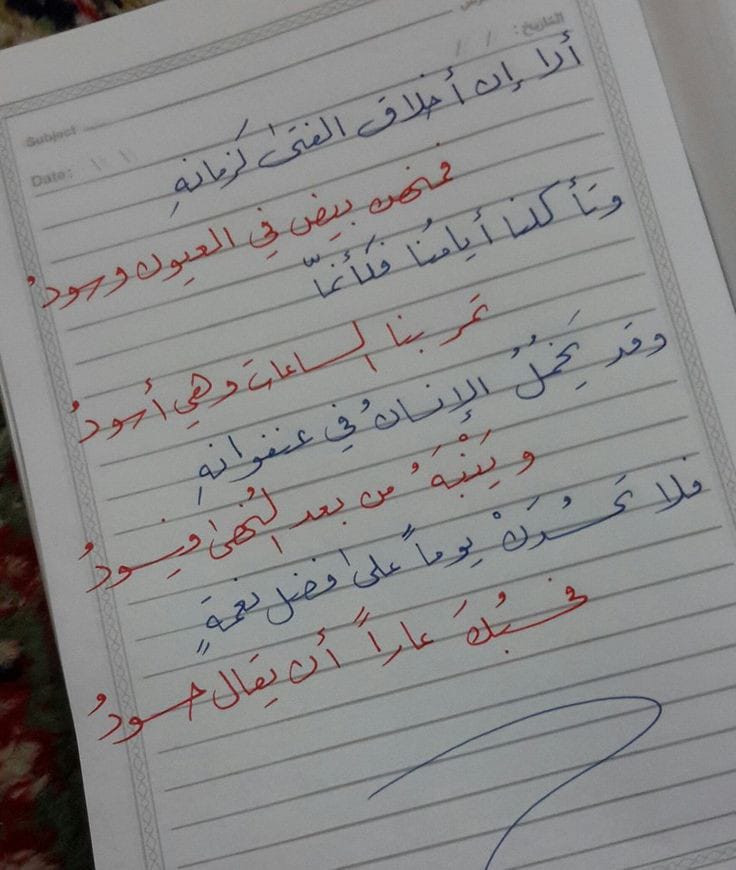 التاريخ: / /
Subject
Date:
ألا إن أخلاق الفتى كزمانهِ
فمنهن بيض في العيون وسودُ
وتأكلنا أيامُنا فكأنمّا
تمر بنا الساعات وهي أسودُ
وقد يَخمُلُ الإنسانُ في عنفوانهِ
ويَنْبَهُ من بعد النُهى ويسودُ
فلا تحسُدَنْ يوماً على فضل نعمةٍ
فحسبُكَ عاراً أن يقال حسودُ